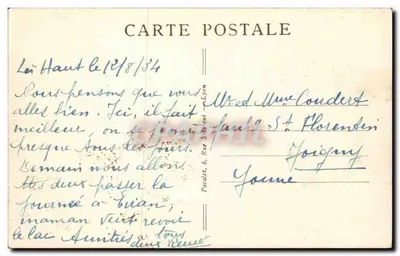 CARTE POSTALE
Là Haut le 12/8/34
Nous pensons que vous
allez bien. Ici, il fait
meilleur, on se
presque tous les jours.
Demain nous allons
ttes deux passer la
journée à Evian,
maman veut revoir
le lac Amitiés à tous
deux Renée
Mr et Mme Coudert
faubg St Florentin
Joigny
Yonne
Paralex, 6, Rue Lyon